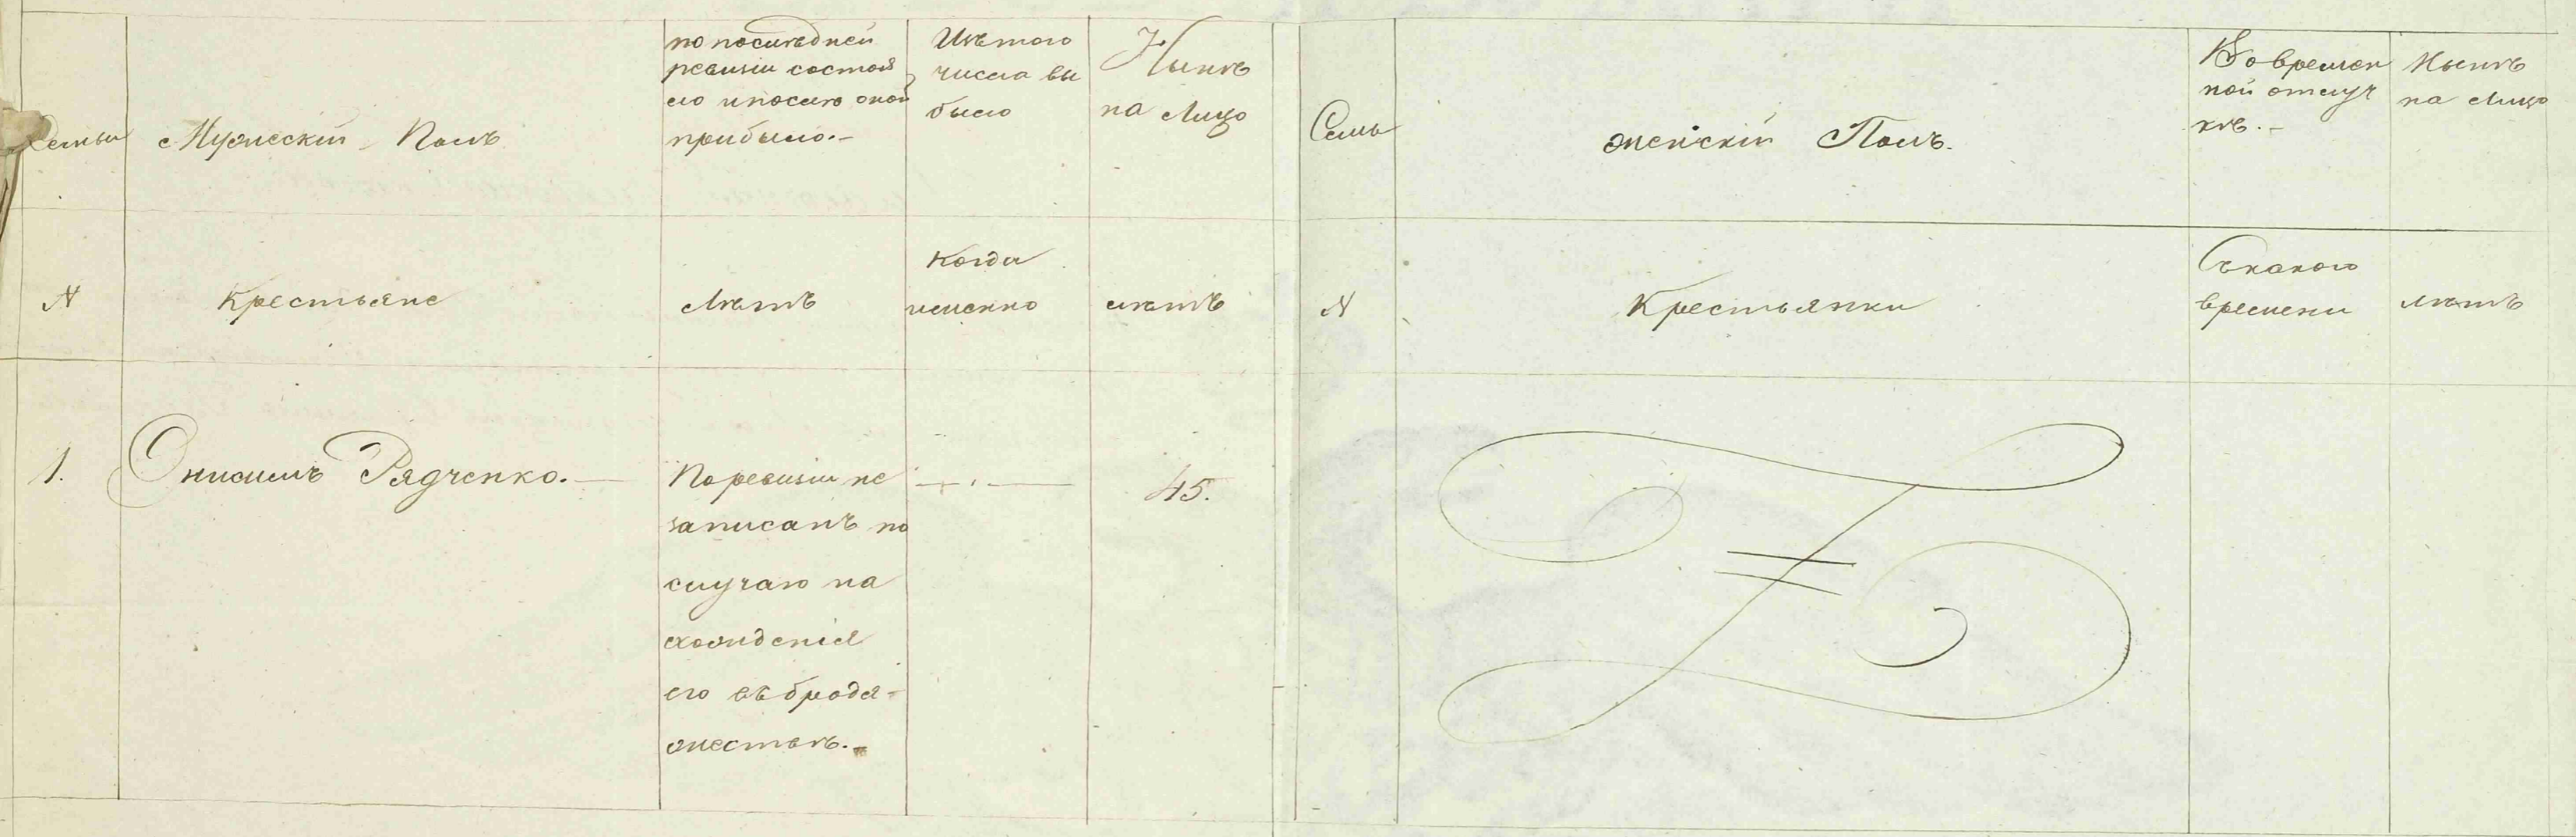 Семьи
Мужескій Полъ
по послѣдней
ревизіи состоя
ло и послѣ оной
прибыло.-
Изъ того
числа вы
было
Нынѣ
на лицо
Семьи
Женскій Полъ.
Во времен
ной отлуч
кѣ.-
Нынѣ
на лицо
N
Крестьяне
Лѣтъ
Когда
именно
лѣтъ
N
Крестьянки
Съ какого
времени
лѣтъ
1.
Онисимъ Рядченко.-
По ревизіи не
записанъ по
случаю на
хожденія
его въ бродя-
жествѣ.-
45.